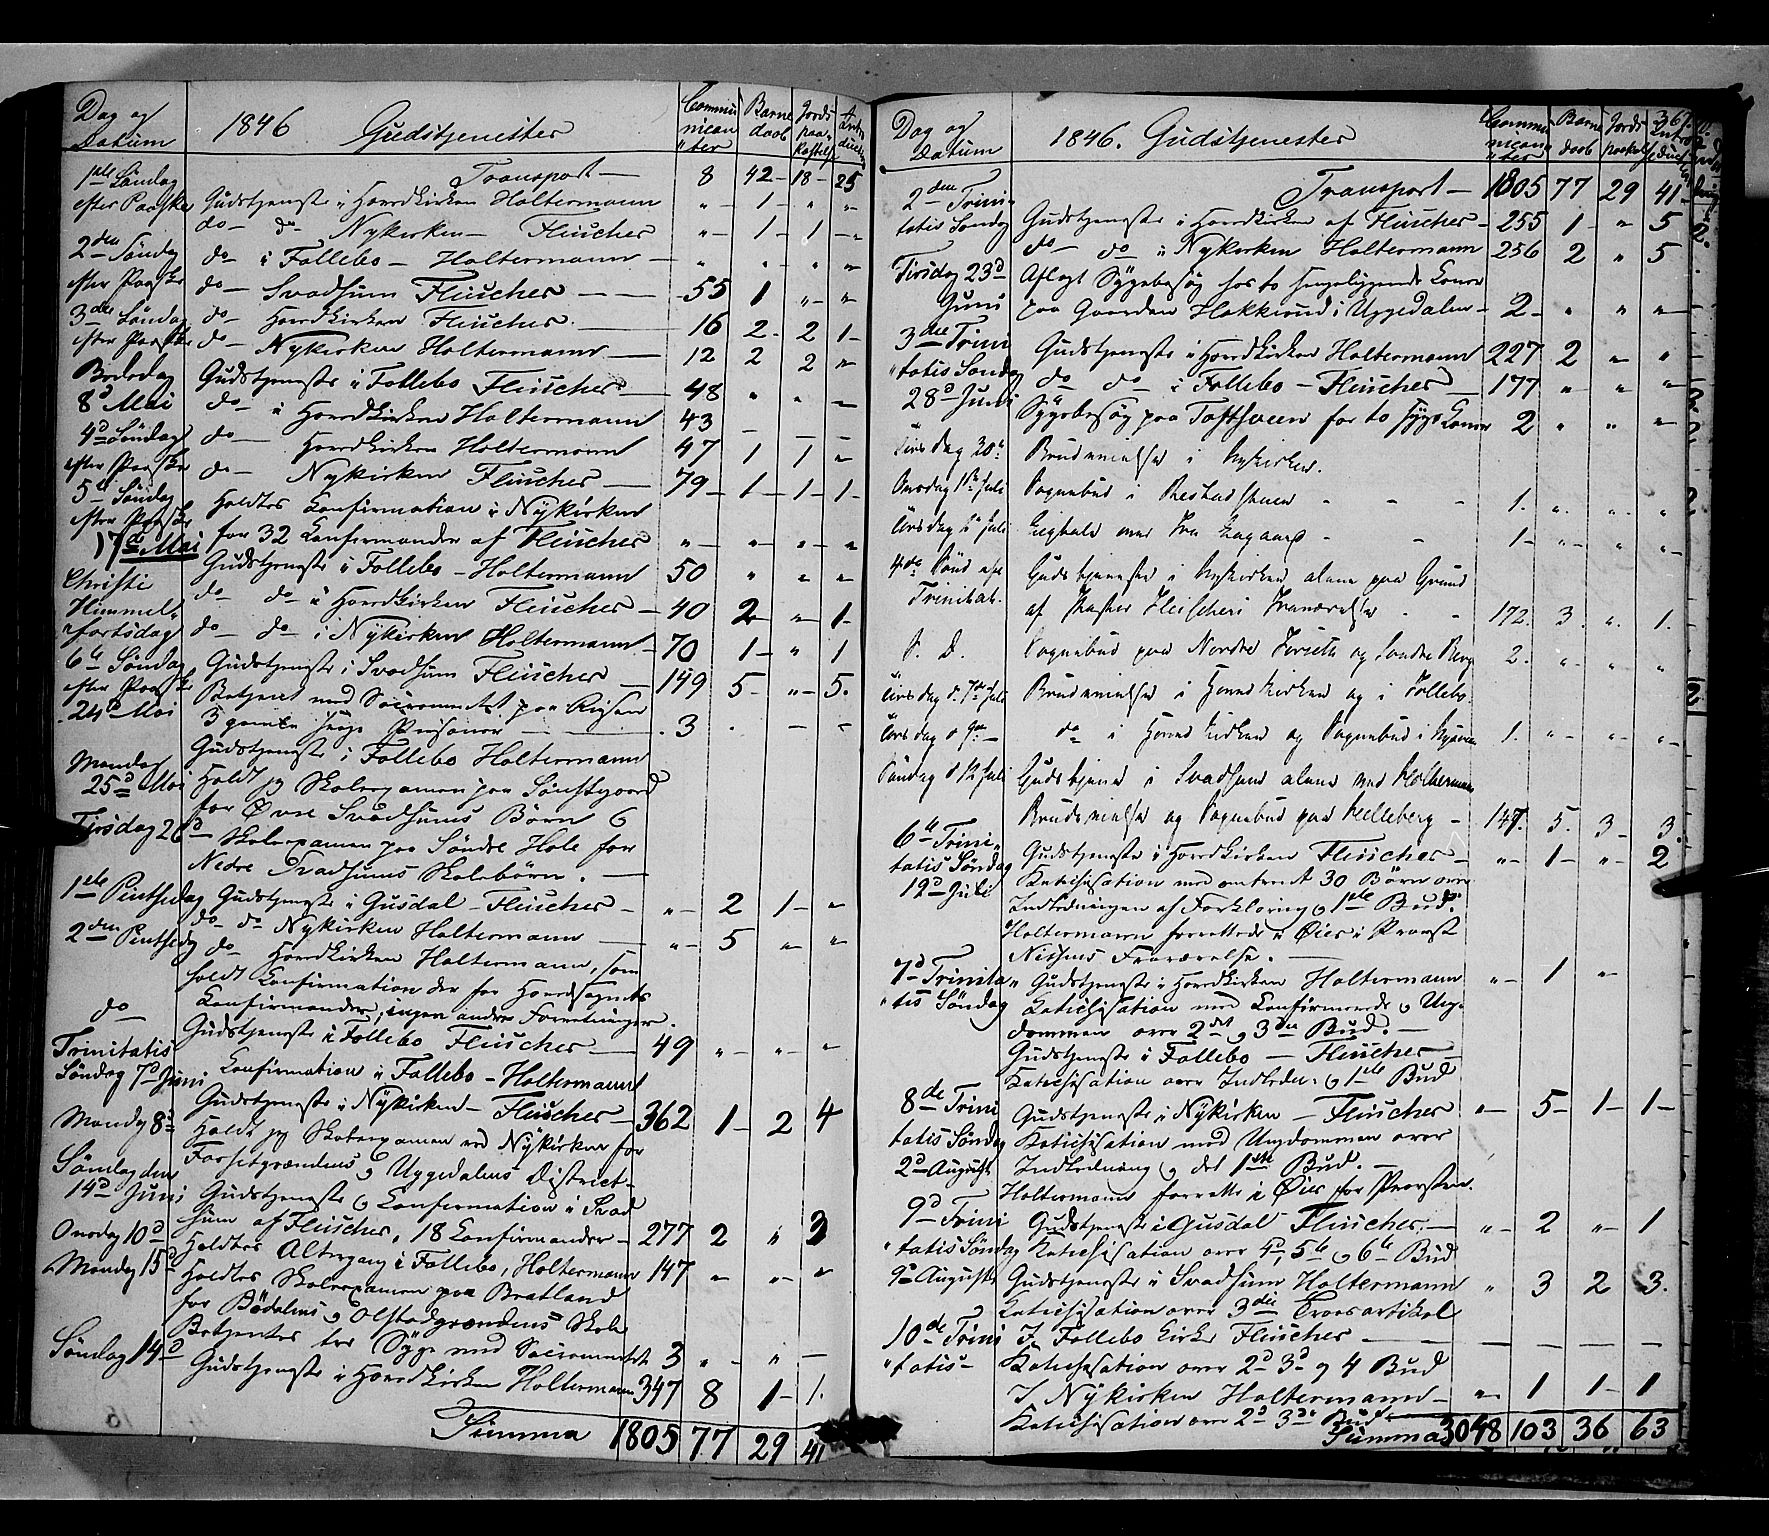 Dag og Datum 1846 Gudstjenester Communicanter Barne daab Jords paa- kastelse Introduction
Transport — 8 42 - 18 - 25
1ste Søndag efter Paaske Gudstjenste i Hovedkirken Holtermann „ - 1 - „ „
do - do Nykirken — Fleischer „ - 1 - 1 - „
2den Søndag efter Paaske do - i Follebo — Holtermann — „ „ „ „
do - Svadsum Fleischer — 55 1 „ - „
3die Søndag efter Paaske do - Hovedkirken Fleischer — 16 2 - 2 1 -
do - Nykirken Holtermann — 12 2 2 „
Bededag 8d Mai Gudstjenste i Follebo Fleischer — 48 „ „ —
do - i Hovedkirken Holtermann 43 — — —
4d Søndag efter Paaske do — Hovedkirken Holtermann 47 1 1 „
do — Nykirken Fleischer — 79 - 1 - 1 - 1 -
5te Søndag efter Paaske Holdtes Confirmation i Nykirken
17de Mai for 32 Confirmander af Fleischer „ - „ - „ - „
Christi Himmelfartsdag Gudstjenste i Follebo - Holtermann 50 „ „ „
do - do i Hovedkirken Fleischer — 40 2 - „ - 1 -
do - do - i Nykirken Holtermann — 70 1 - „ 1
6te Søndag efter Paaske 24d Mai Gudstjenste i Svadsum Fleischer — 149 5 - „ - 5.
Betjent med Sacramentet paa Reisen
3 gamle syge Personer — 3 - — —
Gudstjenste i Follebo Holtermann
Mandag 25d Mai Holdt jeg Skoleexamen paa
for Øvre Svadsums Børn
Tirsdag 26d Skoleexamen paa Søndre Hole for
Nedre Svadsums Skolebørn. —
1ste Pintsedag Gudstjenste i Gusdal - Fleischer — „ - 2 1 - „
2den Pintsedag do - do - Nykirken Holtermann — „ - 5 „ „
do do Hovedkirken Holtermann, som
holdt Confirmation der for Hovedsognets
Confirmander, ingen andre Forretninger.
Trinitatis Søndag 7d Juni Gudstjenste i Follebo Fleischer — 49 „ - „ - „
Confirmation i Follebo - Holtermann
Gudstjenste i Nykirken - Fleischer — 362 1 - 2 4
Mandag 8d Holdt jeg Skoleexamen ved Nykirken for
Forsetgrændens og Uggedalens District -
Søndag den 14d Juni Gudstjenste og Confirmation i Svad
sum af Fleischer, 18 Confirmander — 277 2 „ 3
Onsdag 10d Holdtes Altergang i Follebo, Holtermann 147 „ - „ - „
Mandag 15d Holdtes Skoleexamen paa Bratland
for Bødalens og Olstadgrændens Skole
Betjentes tre Syge med Sacramentet 3 „ - „ —
Søndag 14d Gudstjenste i Hovedkirken Holtermann 347 8 1 - 1.
Summa 1805 77 29 41
367.
Dag og Datum 1846. Gudstjenester Communicanter Barne daab Jords paakast. Introduct.
Transport — 1805 77 29 41 -
2den Trinitatis Søndag Gudstjenste i Hovedkirken af Fleischer - 255 1 - „ 5
do - do - i Nykirken Holtermann 256 2 „ 5
Tirsdag 23d Juni Aflagt Sygebesøg hos to sengeliggende Koner
paa Gaarden Hakkerud i Uggedalen - 2 - „ „ „
3die Trinitatis Søndag 28d Juni Gudstjenste i Hovedkirken Holtermann 227 2 „ „
do do - i Follebo - Fleischer — 177 „ „ „
Sygebesøg paa Toftsveen for to syge Koner 2 „ „ „
Tirsdag 30te Brudevielse i Nykirken.
Onsdag 1ste Juli Sognebud i - - - 1. „ „ „
Juli - - 1 - „ - „ „ -
4de Sønd. e. Trinitat. Gudstjeneste i Nykirken alene paa Grund
af Pastor Fleischers Fraværelse - - 172. 3. „ 1.
S. D. Sognebud paa Nordre og Søndre Berg 2. „ „ „
Tirsdag d. 7de Juli Brudevielse i Hovedkirken og i Follebo.
d 9de - do - i Hovedkirken og Sognebud i 1. „ - „ - „ -
Søndag d 12 Juli Gudstjeneste i Svadsum alene ved Holtermann
Brudevielse og Sognebud paa Helleberg - 147. 5. 3 - 3.
6te Trinitatis Søndag 19d Juli Gudstjenste i Hovedkirken Fleischer - „ - 1 - „ - 2
Katechisation med omtrendt 30 Børn over
Indledningen af Forklaring og 1ste Bud.
Holtermann forrettede i Øier i Provst
Nissens Fraværelse. —
7d Trinitatis Søndag Gudstjenste i Hovedkirken Holtermann „ - 1 „ -
Katechisation med Confirmerede og Ung-
dommen over 2det og 3die Bud. —
Gudstjenste i Follebo — Fleischer —
Katechisation over Indledn. og 1ste Bud
8de Trinitatis Søndag 2d August Gudstjenste i Nykirken — Fleischer „ - 5 - 1 - 1 -
Katechisation med Ungdommen over
Indledning og det 1ste Bud. —
Holtermann forrette i Øier for Provsten.
9d Trinitatis Søndag 9d August Gudstjenste i Gusdal Fleischer. — „ - 2 „ - 1
Katechisation over 4d, 5te og 6te Bud
Gudstjenste i Svadsum Holtermann „ 3 2 3.
Katechisation over 3die Troesartikel
10de Trinitatis I Follebo Kirke Fleischer — — — — —
Katechisation over 2d 3d og 4 Bud
I Nykirken Holtermann — „ - 1 1 - 1
Katechisation over 2d 3die Bud.
Summa 3048 103 36 63